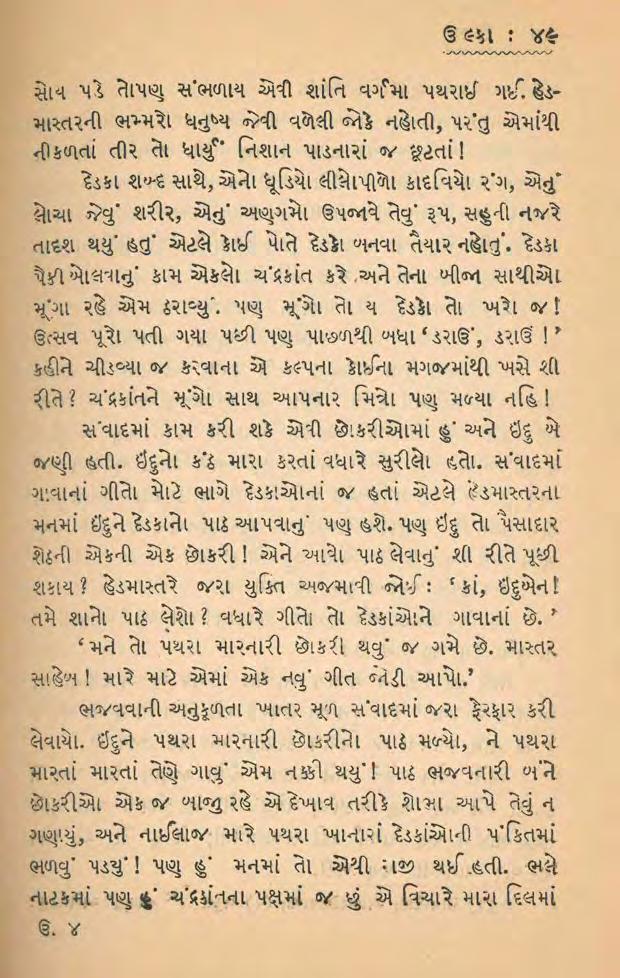 ઉલ્કા : ૪૯
સોય પડે તોપણ સંભળાય એવી શાંતિ વર્ગમા પથરાઈ ગઈ. હેડ-
માસ્તરની ભમ્મરો ધનુષ્ય જેવી વળેલી જોકે નહોતી, પરંતુ એમાંથી
નીકળતાં તીર તો ધાર્યું નિશાન પાડનારાં જ છૂટતાં!
દેડકા શબ્દ સાથે, એનો ધૂડિયો લીલોપીળો કાદવિયો રંગ, એનું
લોચા જેવું શરીર, એનું અણગમો ઉપજાવે તેવું રૂપ, સહુની નજરે
તાદશ થયું હતું એટલે કોઈ પોતે દેડકો બનવા તૈયાર નહોતું. દેડકા
પૈકી બોલવાનું કામ એકલો ચંદ્રકાંત કરે અને તેના બીજા સાથીઓ
મૂંગા રહે એમ ઠરાવ્યું. પણ મૂંગો તો ય દેડકો તો ખરો જ!
ઉત્સવ પૂરો પતી ગયા પછી પણ પાછળથી બધા ‘ડરાઉં, ડરાઉં !’
કહીને ચીડવ્યા જ કરવાના એ કલ્પના કોઈના મગજમાંથી ખસે શી
રીતે? ચંદ્રકાંતને મૂંગો સાથ આપનાર મિત્રો પણ મળ્યા નહિ!
સંવાદમાં કામ કરી શકે એવી છોકરીઓમાં હું અને ઇંદુ બે
જણી હતી. ઇંદુનો કંઠ મારા કરતાં વધારે સુરીલો હતો. સંવાદમાં
ગાવાનાં ગીતો મોટે ભાગે દેડકાઓનાં જ હતાં એટલે હેડમાસ્તરના
મનમાં ઇંદુને દેડકાનો પાઠ આપવાનું પણ હશે. પણ ઇંદુ તો પૈસાદાર
શેઠની એકની એક છોકરી! એને આવો પાઠ લેવાનું શી રીતે પૂછી
શકાય? હેડમાસ્તરે જરા યુક્તિ અજમાવી જોઈ: ‘કાં, ઇંદુબેન!
તમે શાનો પાઠ લેશો? વધારે ગીતો તો દેડકાંઓને ગાવાનાં છે.’
‘મને તો પથરા મારનારી છોકરી થવું જ ગમે છે. માસ્તર
સાહેબ! મારે માટે એમાં એક નવું ગીત જોડી આપો.’
ભજવવાની અનુકૂળતા ખાતર મૂળ સંવાદમાં જરા ફેરફાર કરી
લેવાયો. ઇંદુને પથરા મારનારી છોકરીનો પાઠ મળ્યો, ને પથરા
મારતાં મારતાં તેણે ગાવું એમ નક્કી થયું! પાઠ ભજવનારી બંને
છોકરીઓ એક જ બાજુ રહે એ દેખાવ તરીકે શોભા આપે તેવું ન
ગણાયું, અને નાઈલાજ મારે પથરા ખાનારાં દેડકાંઓની પંકિતમાં
ભળવું પડયું! પણ હું મનમાં તો એથી રાજી થઈ હતી. ભલે
નાટકમાં પણ હું ચંદ્રકાંતના પક્ષમાં જ છું એ વિચારે મારા દિલમાં
ઉ. ૪